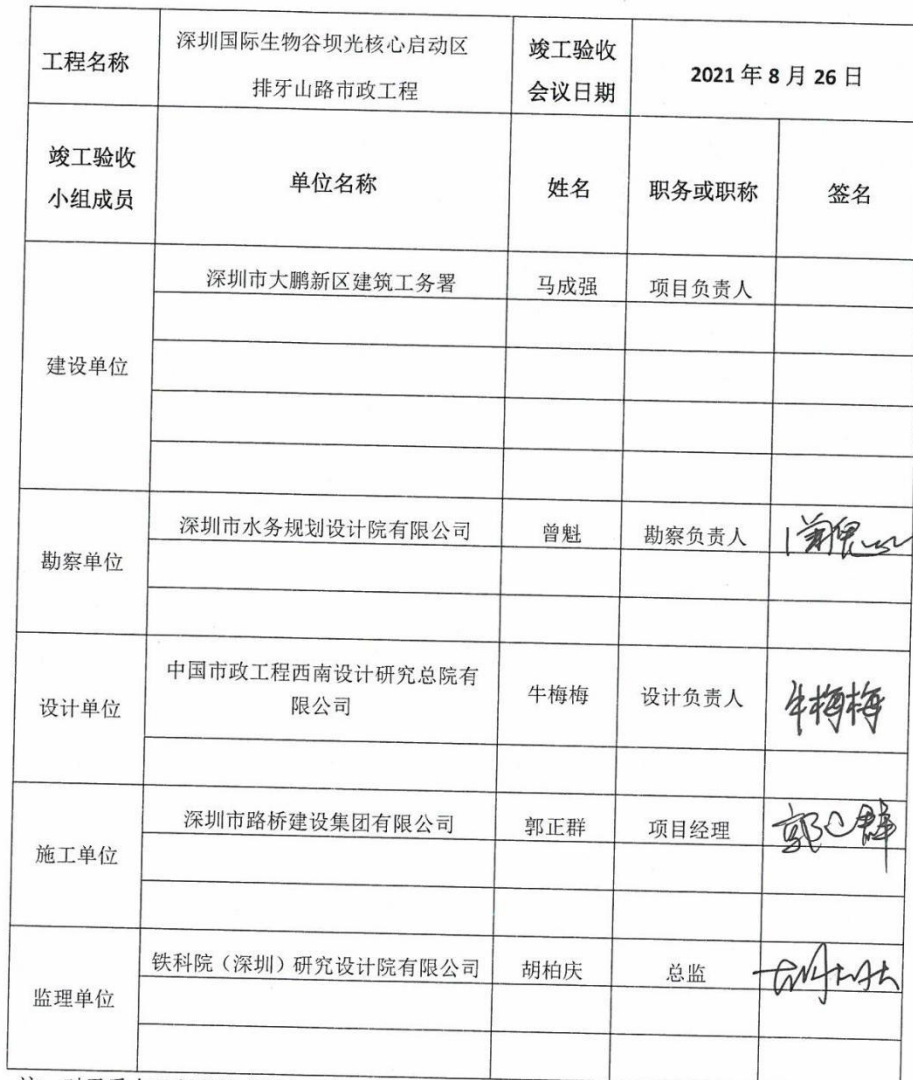 工程名称
深圳国际生物谷坝光核心启动区
排牙山路市政工程
竣工验收
会议日期
2021 年 8 月 26 日
竣工验收
小组成员
单位名称
姓名
职务或职称
签名
建设单位
深圳市大鹏新区建筑工务署
马成强
项目负责人
勘察单位
深圳市水务规划设计院有限公司
曾魁
勘察负责人
设计单位
中国市政工程西南设计研究总院有
限公司
牛梅梅
设计负责人
牛梅梅
施工单位
深圳市路桥建设集团有限公司
郭正群
项目经理
郭正群
监理单位
铁科院（深圳）研究设计院有限公司
胡柏庆
总监